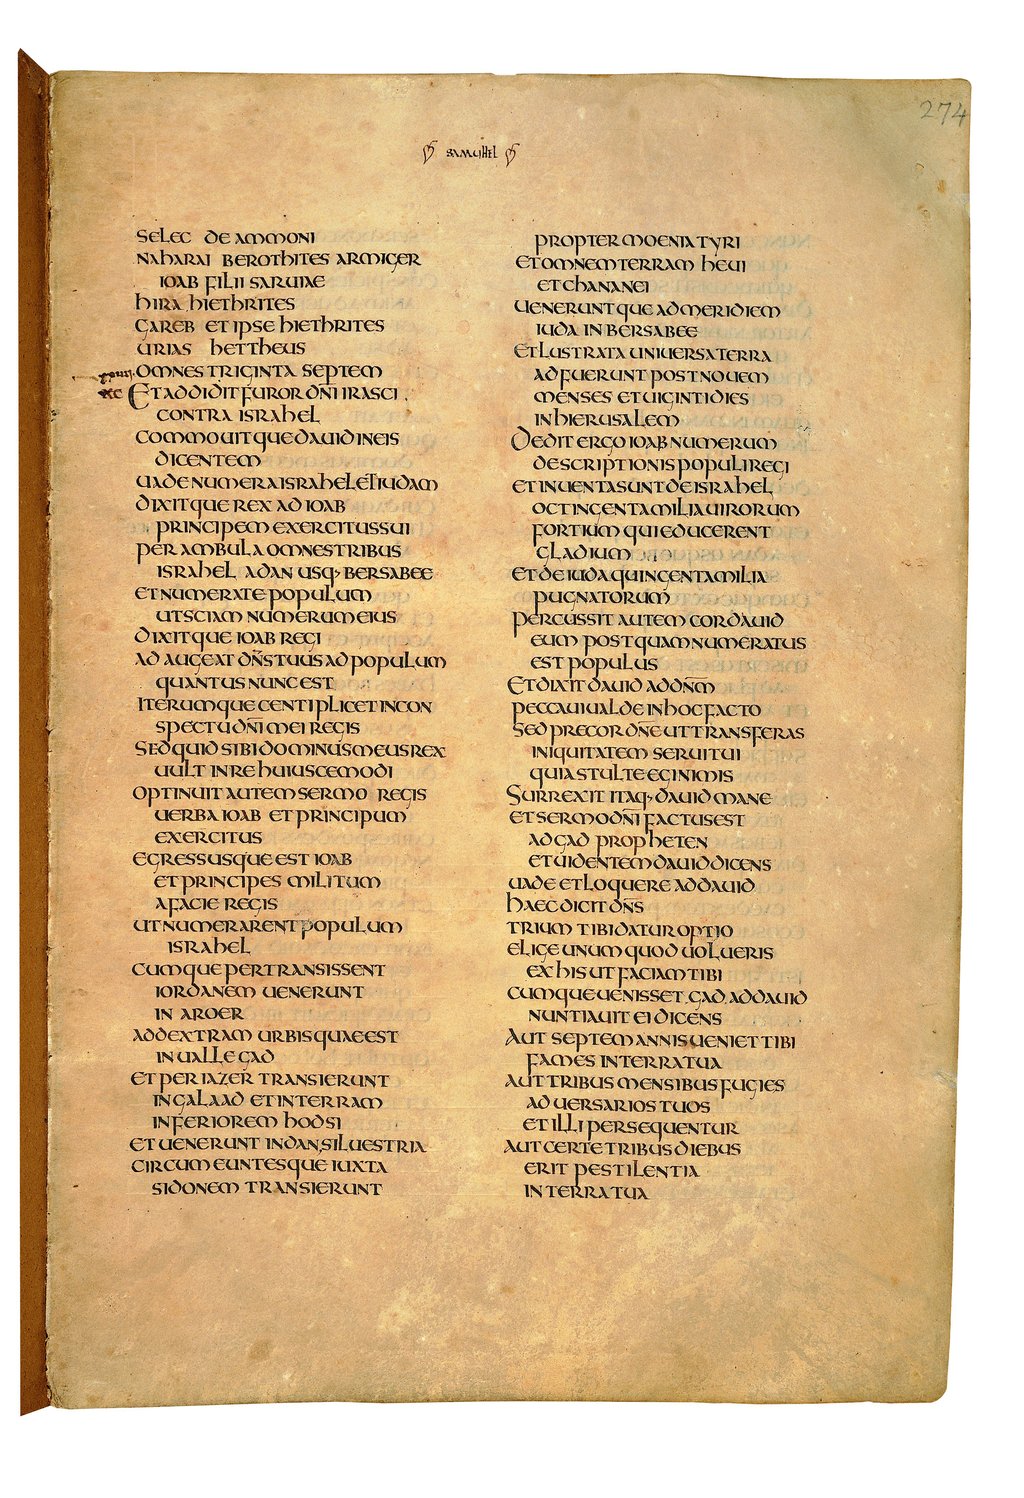 274
SAMUHEL
SELEC DE AMMONI
NAHARAI BEROTHITES ARMIGER
IOAB FILII SARUIAE
HIRA HIETHRITES
GAREB ET IPSE HIETHRITES
URIAS HETTHEUS
OMNES TRIGINTA SEPTEM
ET ADDIDIT FUROR DN̄I IRASCI
CONTRA ISRAHEL
COMMOUITQUE DAUID IN EIS
DICENTEM
UADE NUMERA ISRAHEL ET IUDAM
DIXITQUE REX AD IOAB
PRINCIPEM EXERCITUS SUI
PERAMBULA OMNES TRIBUS
ISRAHEL A DAN USQ; BERSABEE
ET NUMERATE POPULUM
UT SCIAM NUMERUM EIUS
DIXITQUE IOAB REGI
ADAUGEAT DN̄S TUUS AD POPULUM
QUANTUS NUNC EST
ITERUMQUE CENTIPLICET IN CON
SPECTU DN̄I MEI REGIS
SED QUID SIBI DOMINUS MEUS REX
UULT IN RE HUIUSCEMODI
OPTINUIT AUTEM SERMO REGIS
UERBA IOAB ET PRINCIPUM
EXERCITUS
EGRESSUSQUE EST IOAB
ET PRINCIPES MILITUM
A FACIE REGIS
UT NUMERARENT POPULUM
ISRAHEL
CUMQUE PERTRANSISSENT
IORDANEM UENERUNT
IN AROER
AD DEXTRAM URBIS QUAE EST
IN UALLE GAD
ET PER IAZER TRANSIERUNT
IN GALAAD ET IN TERRAM
INFERIOREM HODSI
ET UENERUNT IN DAN SILUESTRIA
CIRCUMEUNTESQUE IUXTA
SIDONEM TRANSIERUNT
PROPTER MOENIA TYRI
ET OMNEM TERRAM HEUI
ET CHANANEI
UENERUNTQUE AD MERIDIEM
IUDA IN BERSABEE
ET LUSTRATA UNIUERSA TERRA
ADFUERUNT POST NOUEM
MENSES ET UIGINTI DIES
IN HIERUSALEM
DEDIT ERGO IOAB NUMERUM
DESCRIPTIONIS POPULI REGI
ET INUENTA SUNT DE ISRAHEL
OCTINGENTA MILIA UIRORUM
FORTIUM QUI EDUCERENT
GLADIUM
ET DE IUDA QUINGENTA MILIA
PUGNATORUM
PERCUSSIT AUTEM COR DAUID
EUM POSTQUAM NUMERATUS
EST POPULUS
ET DIXIT DAUID AD DN̄M
PECCAUI UALDE IN HOC FACTO
SED PRECOR DN̄E UT TRANSFERAS
INIQUITATEM SERUI TUI
QUIA STULTE EGI NIMIS
SURREXIT ITAQ; DAUID MANE
ET SERMO DN̄I FACTUS EST
AD GAD PROPHETEN
ET UIDENTEM DAUID DICENS
UADE ET LOQUERE AD DAUID
HAEC DICIT DN̄S
TRIUM TIBI DATUR OPTIO
ELIGE UNUM QUOD UOLUERIS
EX HIS UT FACIAM TIBI
CUMQUE UENISSET GAD AD DAUID
NUNTIAUIT EI DICENS
AUT SEPTEM ANNIS UENIET TIBI
FAMES IN TERRA TUA
AUT TRIBUS MENSIBUS FUGIES
ADUERSARIOS TUOS
ET ILLI PERSEQUENTUR
AUT CERTE TRIBUS DIEBUS
ERIT PESTILENTIA
IN TERRA TUA